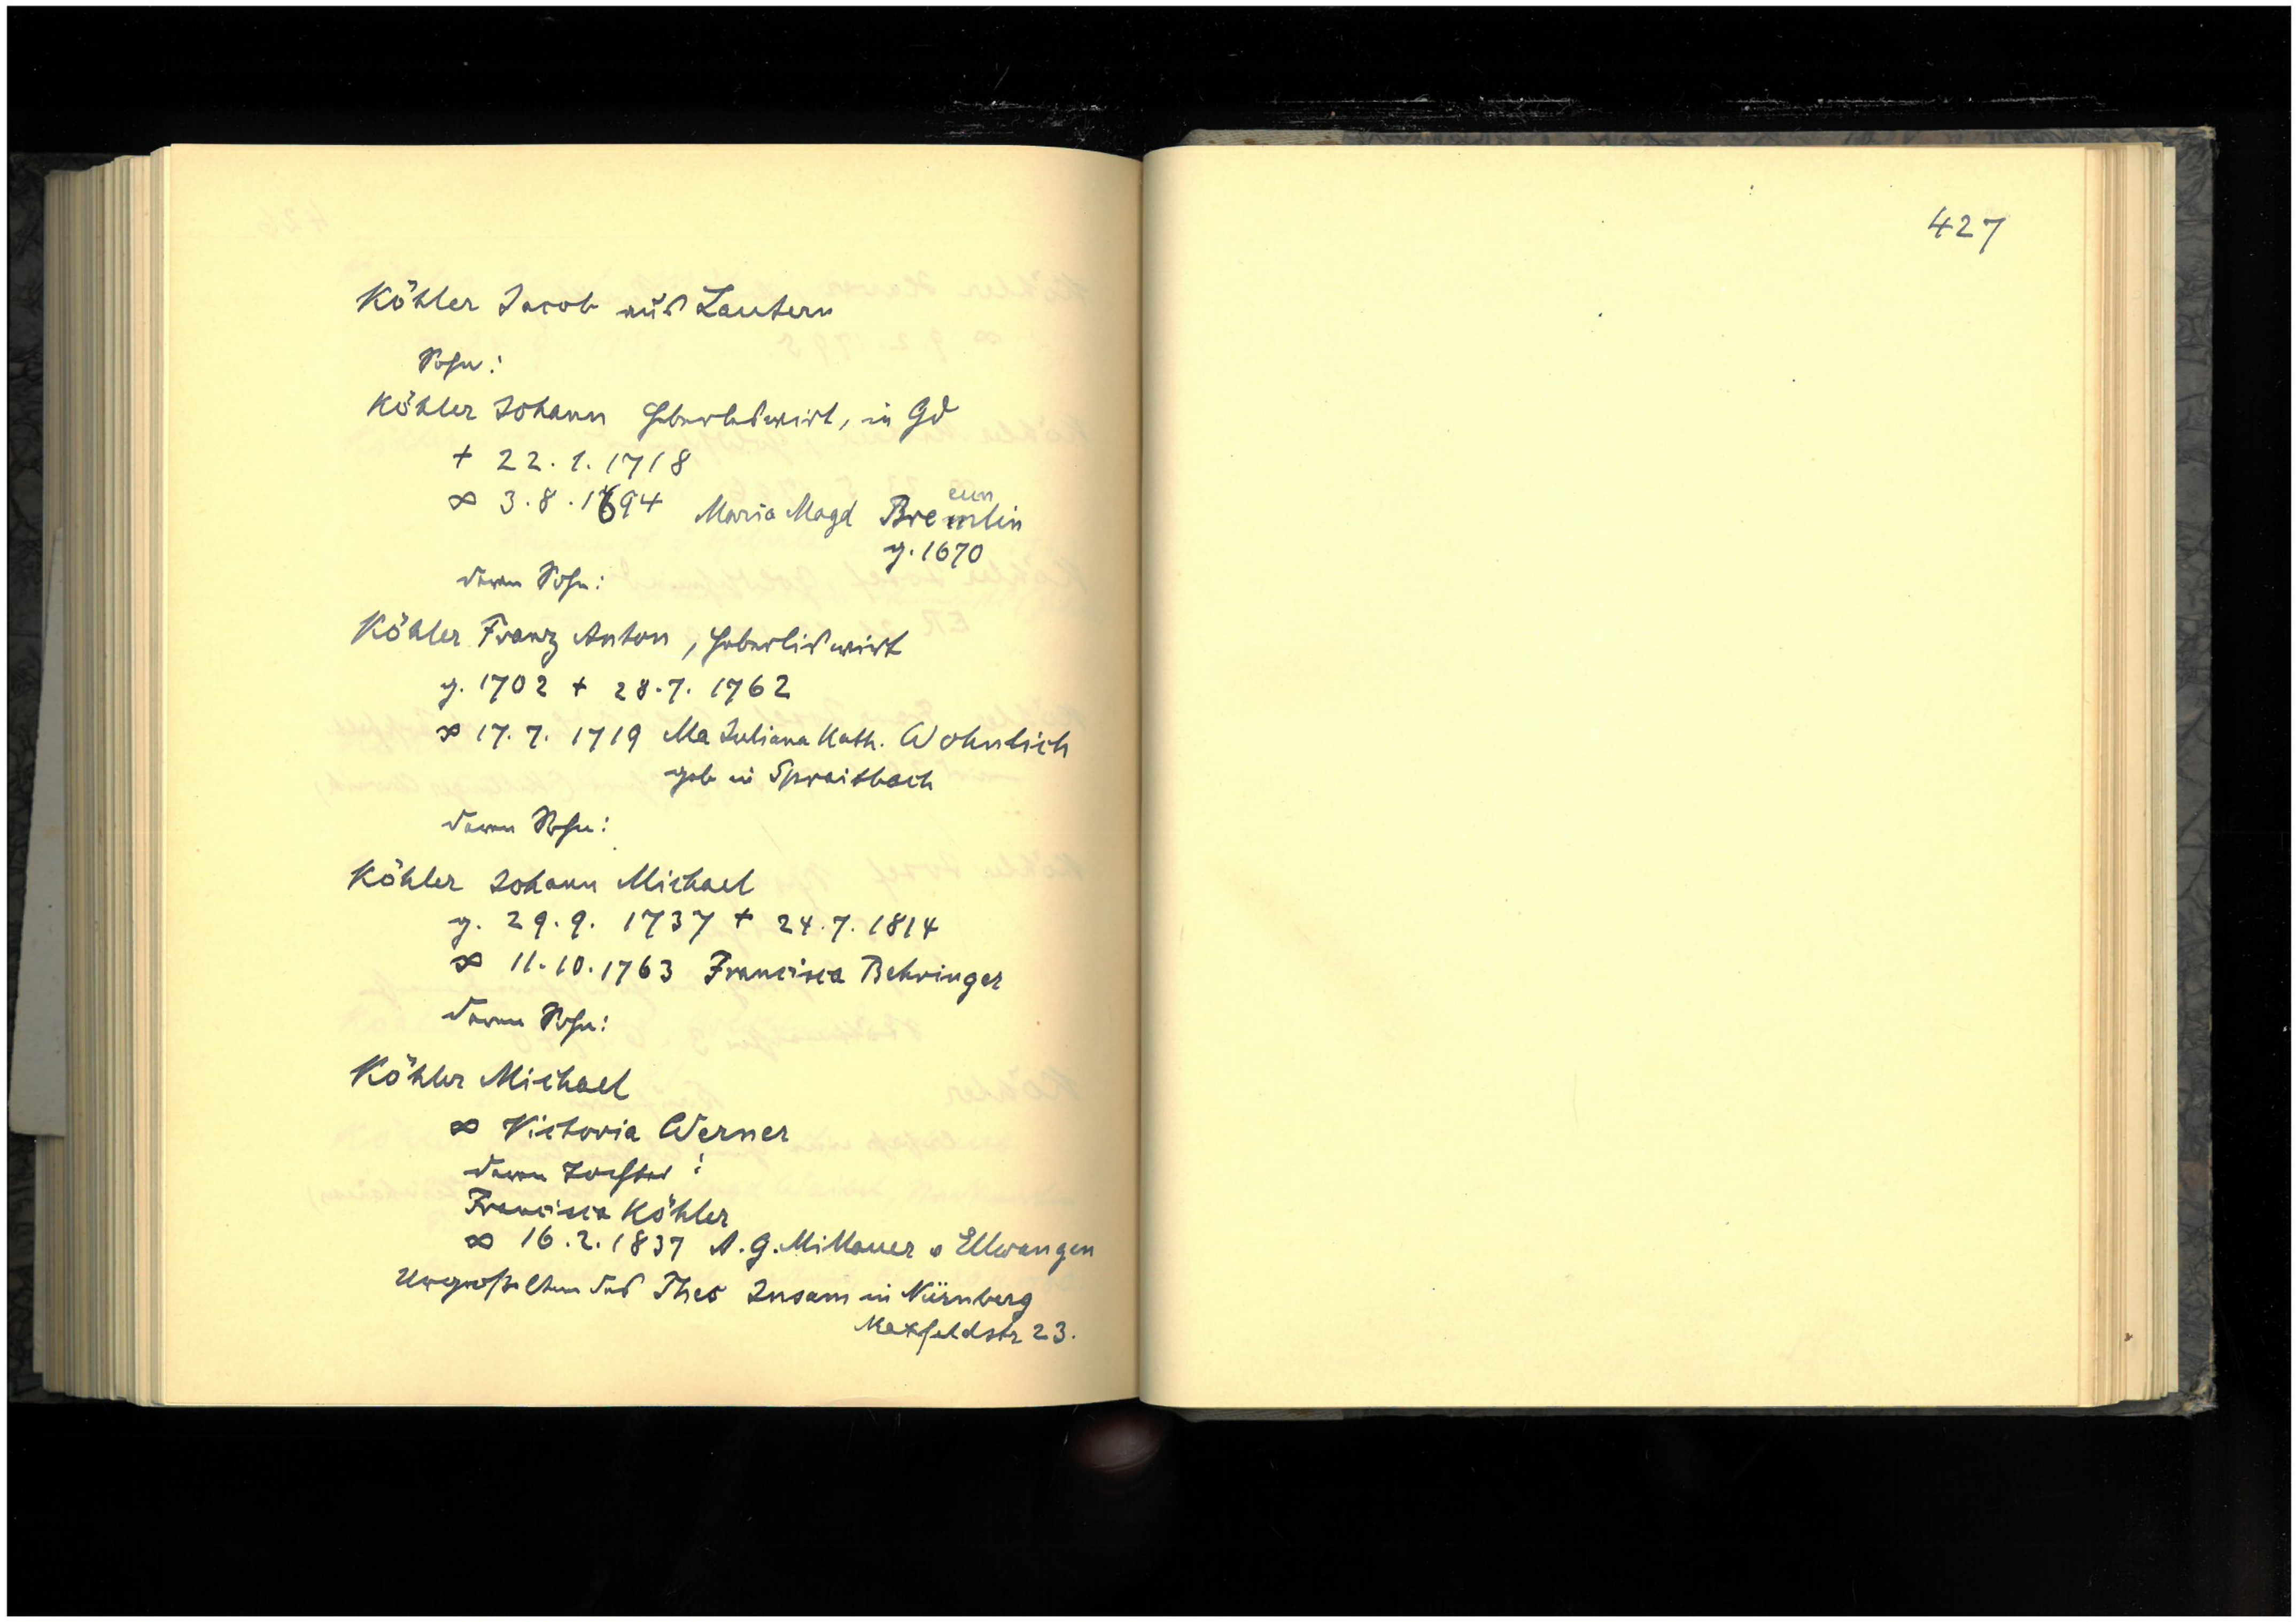 Köhler Jacob aus Lautern
Sohn:
Köhler Johann Haberleswirt, in Gd
+ 22.1.1718
∞ 3.8.1694 Maria Magd Bremlin
eun
g. 1670
deren Sohn:
Köhler Franz Anton, Haberliswirt
g. 1702 + 28.7. 1762
∞ 17.7. 1719 Ma Juliana Kath. Wohnlich
geb in Spraitbach
deren Sohn:
Köhler Johann Michael
g. 29.9. 1737 + 24.7. 1814
∞ 11.10.1763 Francisca Behringer
deren Sohn:
Köhler Michael
∞ Victoria Werner
deren Tochter:
Francisca Köhler
∞ 16.2.1837 A.G. Millauer v Ellwangen
Urgroßeltern des Theo Insam in Nürnberg
Maxfeldstr 23.
427